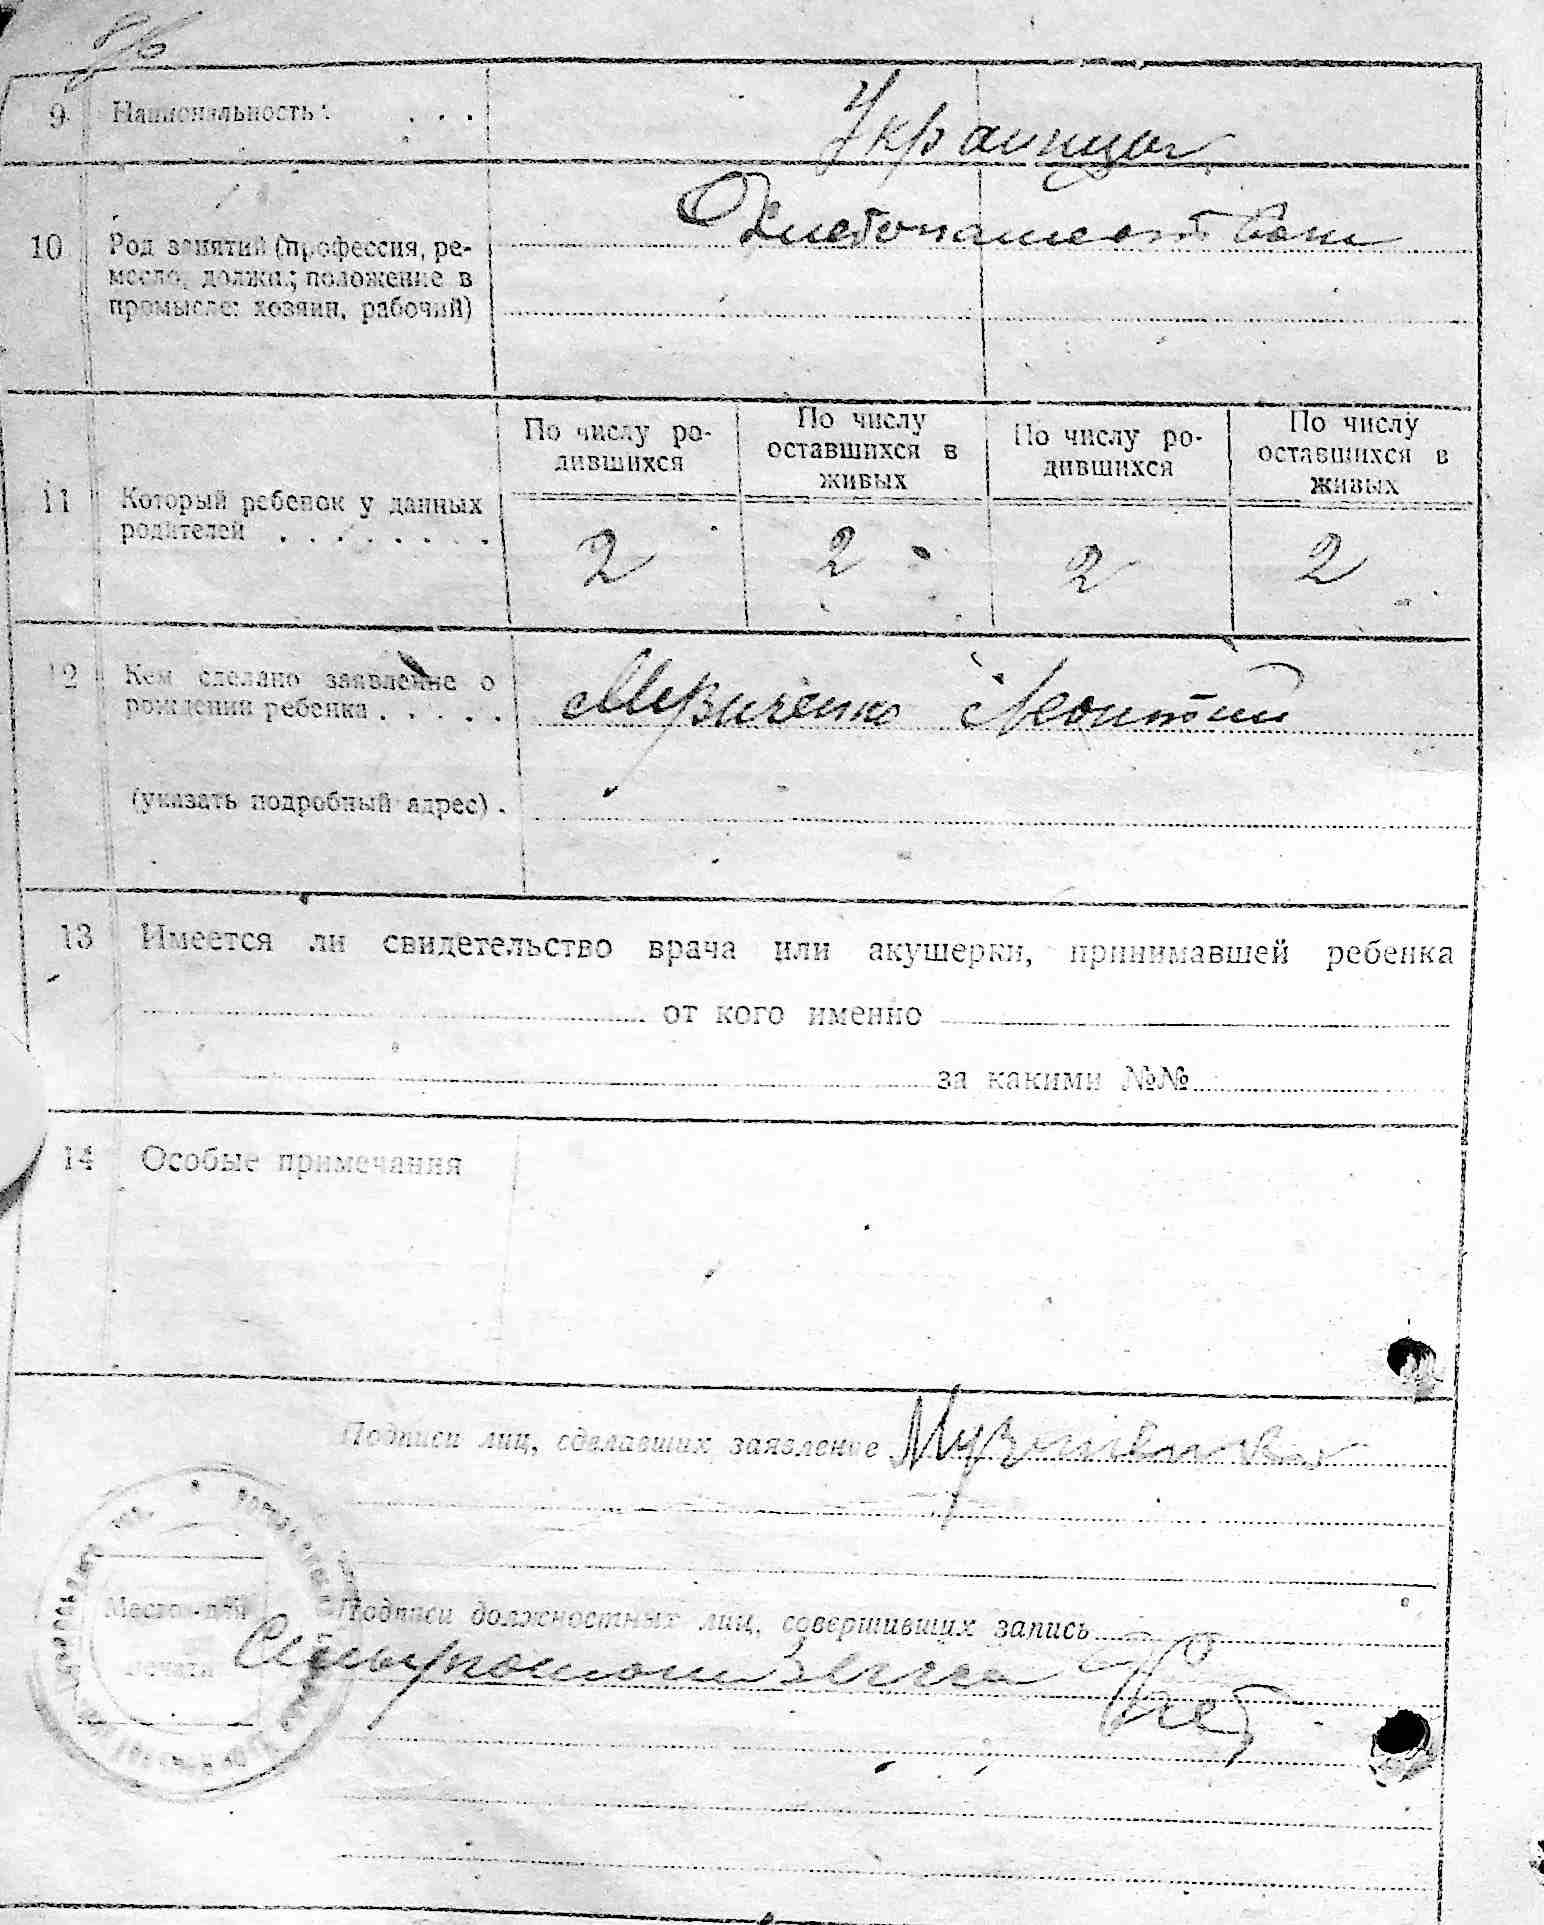 9 Национальность: . . .
Украинцы
10 Род занятий (профессия, ре-
месло, должн.; положение в
промысле: хозяин, рабочий)
Хлебопашество
По числу ро-
дившихся
По числу
оставшихся в
живых
По числу ро-
дившихся
По числу
оставшихся в
живых
11 Который ребенок у данных
родителей . . . . . . . .
2 2 2 2
12 Кем сделано заявление о
рождении ребенка . . . . .
Леонтий
(указать подробный адрес) .
13 Имеется ли свидетельство врача или акушерки, принимавшей ребенка
от кого именно
за какими №№
14 Особые примечания
Подписи лиц, сделавших заявление
Место для
печати
Подписи должностных лиц, совершивших запись